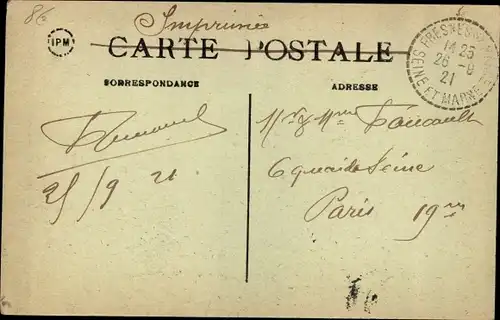 8€
Imprimée
IPM
CARTE POSTALE
CORRESPONDANCE
ADRESSE
FRESNES
14 25
26 - 9
21
SEINE ET MARNE
Mr & Mme Foucault
6 quai de Seine
Paris 19me
25/9 21